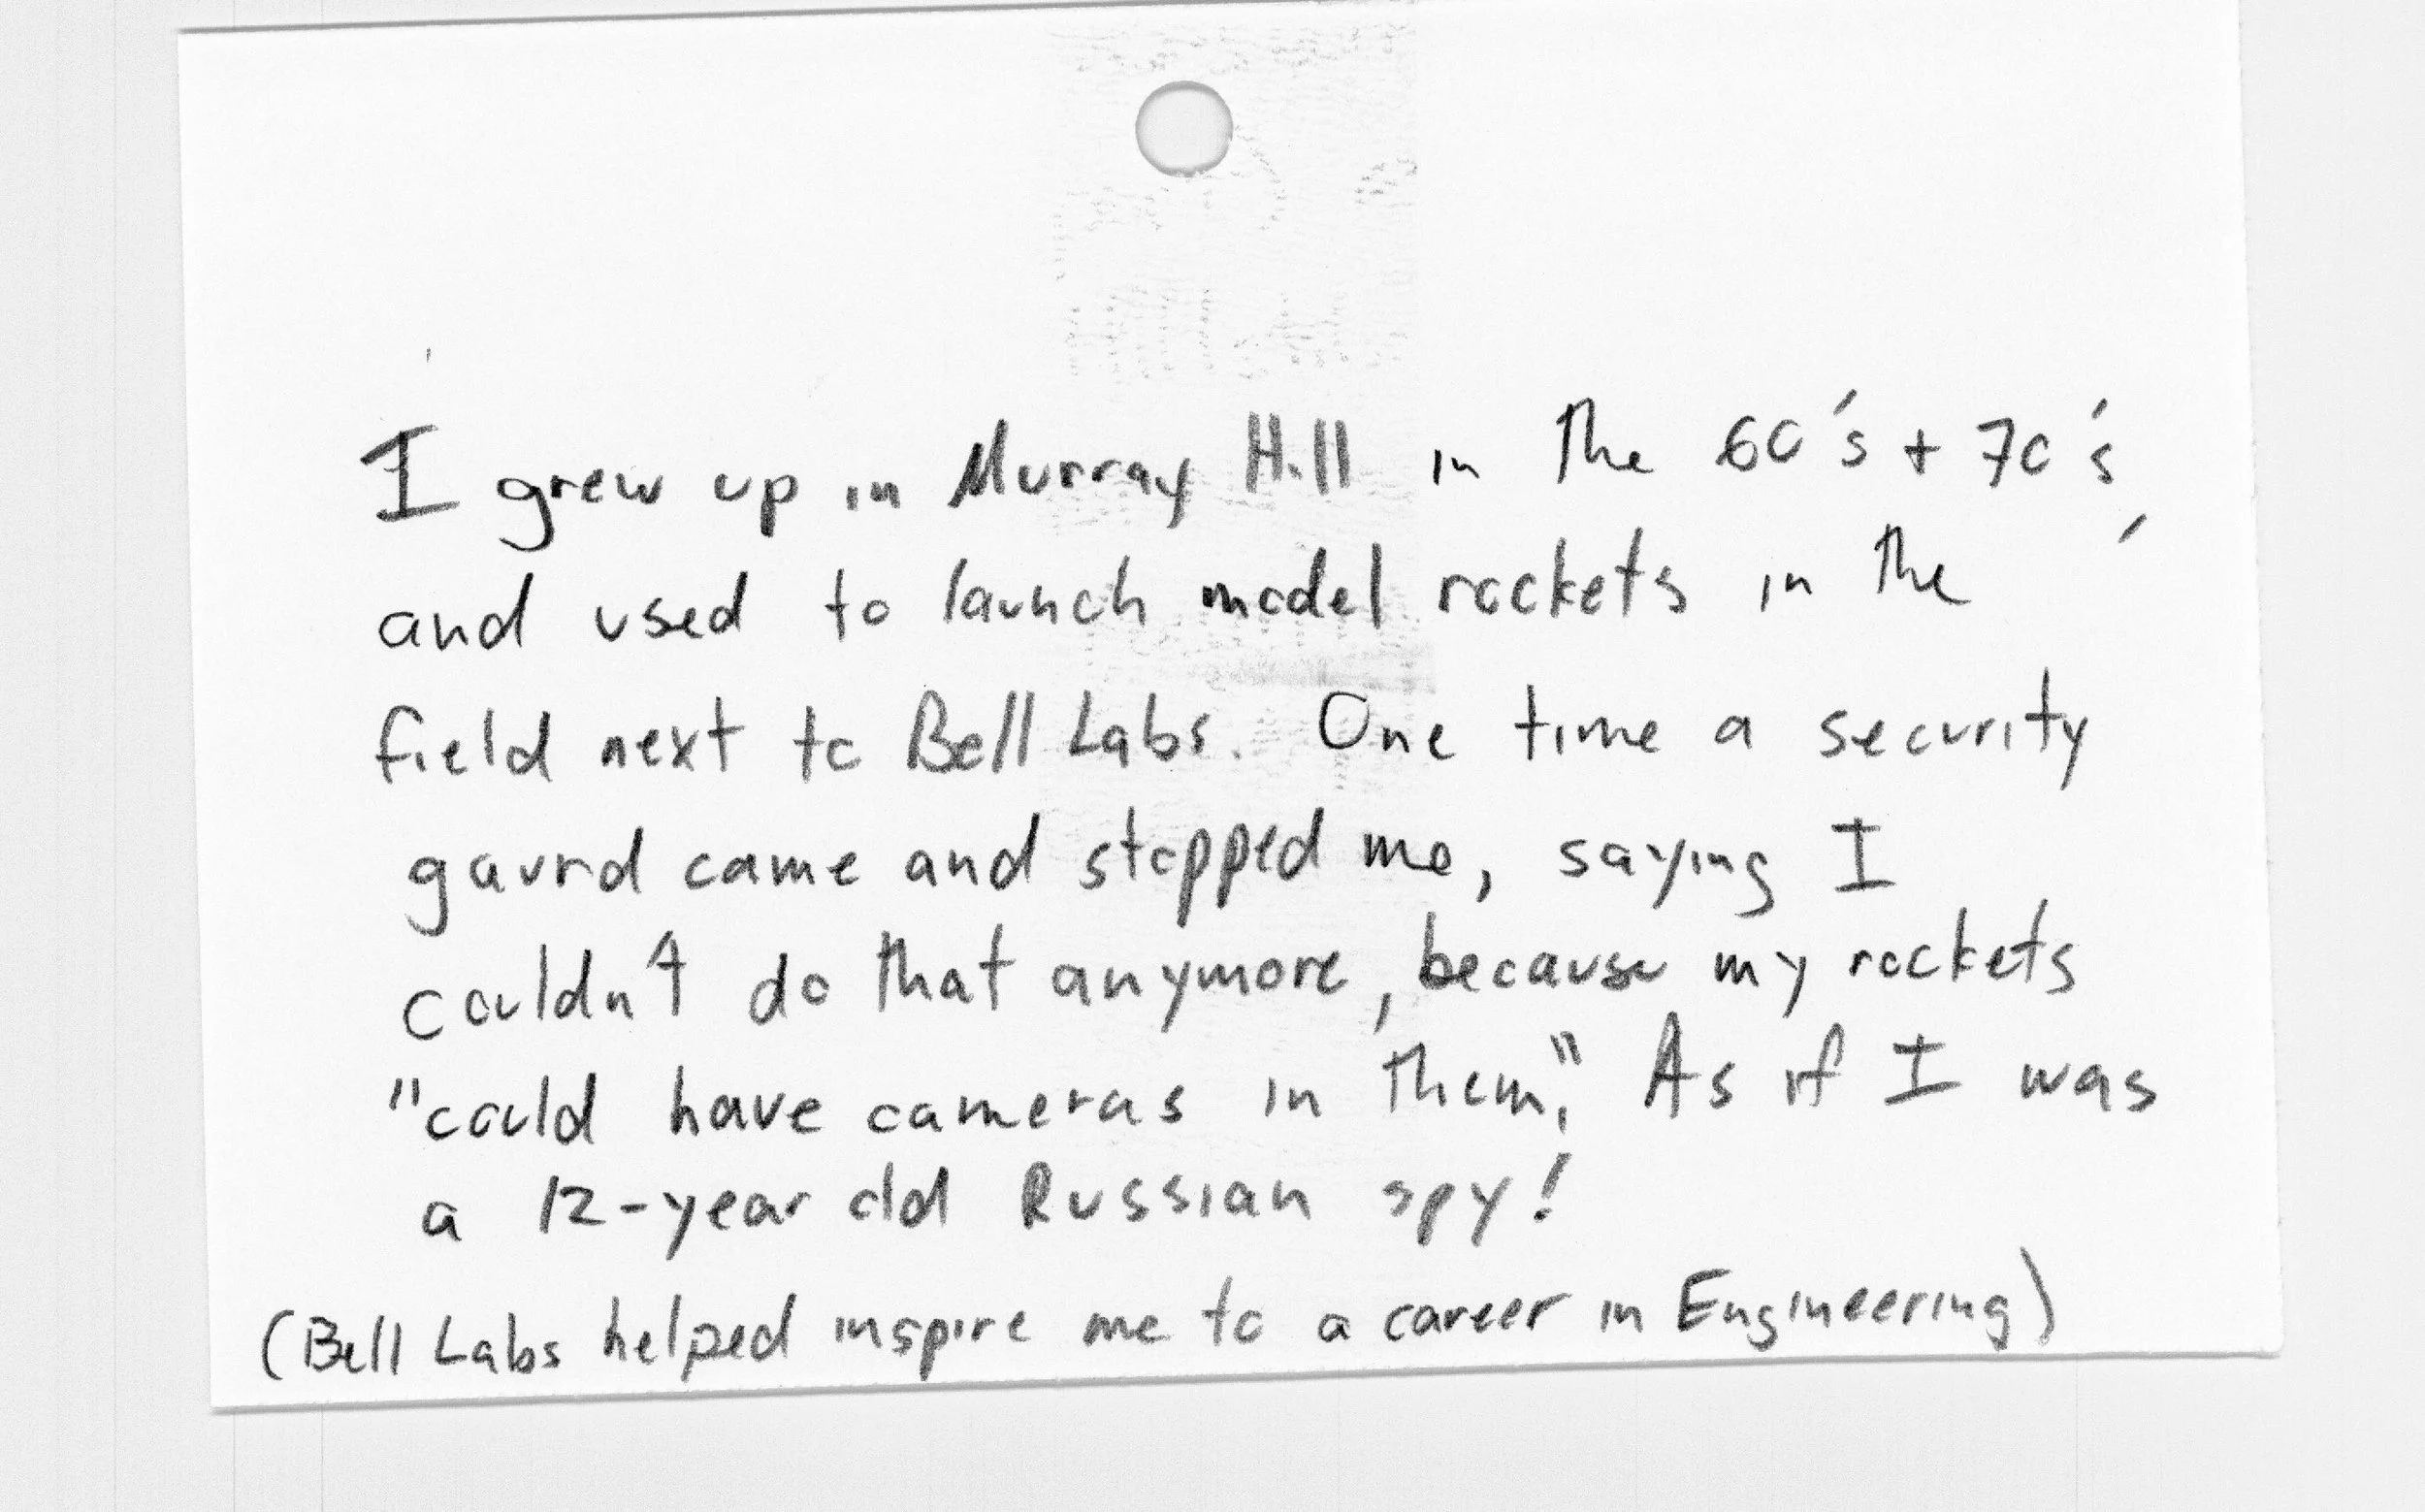 I grew up in Murray Hill in the 60's + 70's
and used to launch model rockets in the
field next to Bell Labs. One time a security
gaurd came and stopped me, saying I
couldn't do that anymore, because my rockets
"could have cameras in them." As if I was
a 12-year old Russian spy!
(Bell Labs helped inspire me to a career in Engineering)